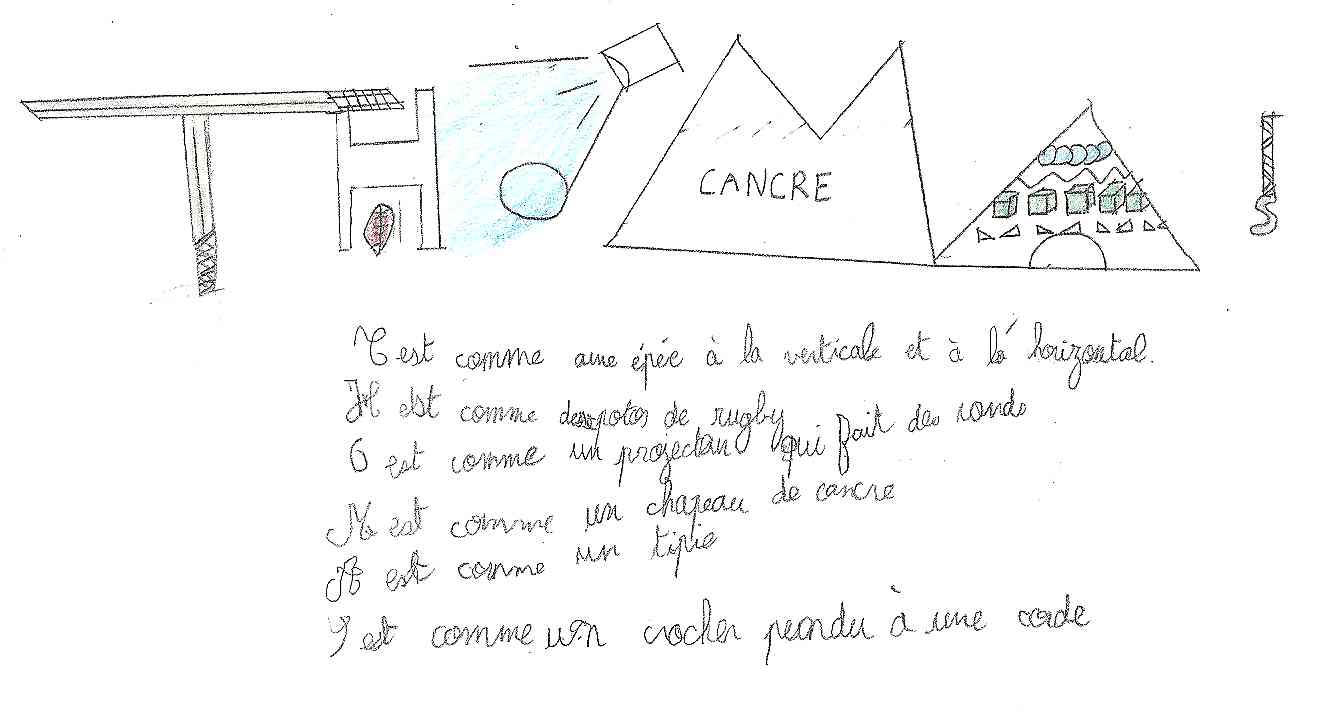 THOMAS
CANCRE
T est comme une épée à la verticale et à la horizontal.
H est comme des potos de rugby
O est comme un projecteur qui fait des ronds
M est comme un chapeau de cancre
A est comme un tipie
S est comme un crochet pendu à une corde